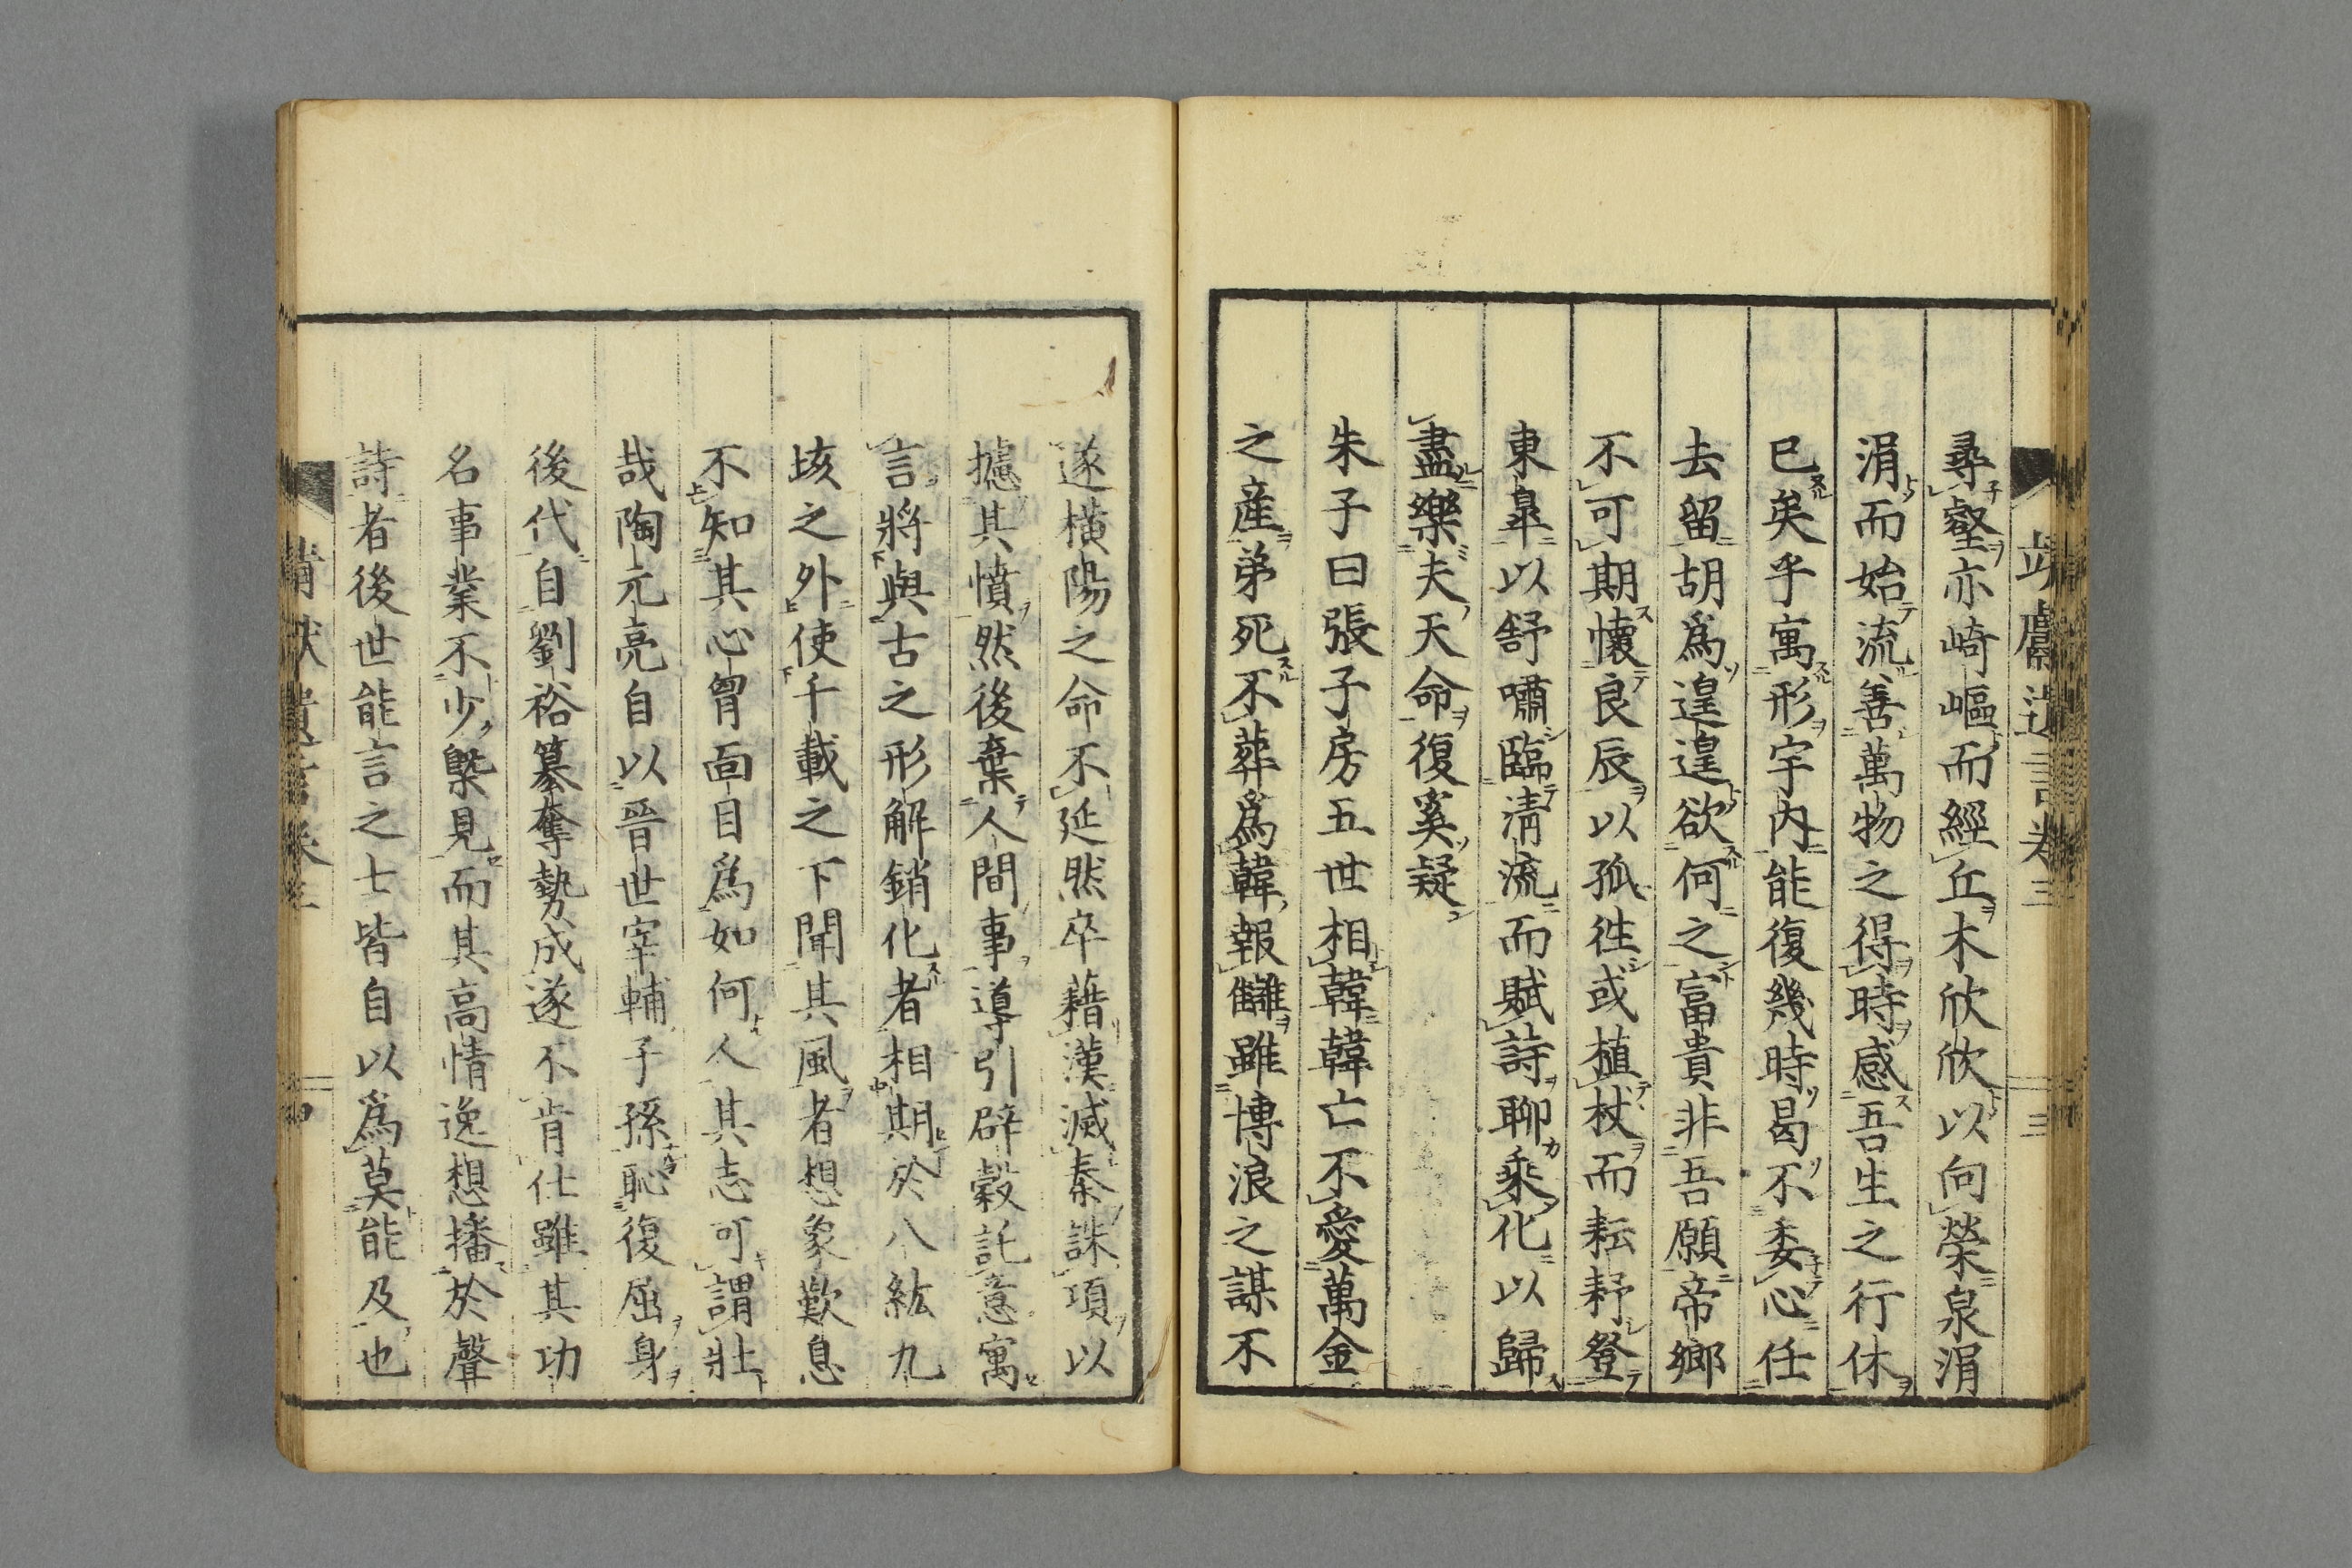 尋壑亦崎嶇而經丘木欣欣以向榮泉涓
涓而始流善萬物之得時感吾生之行休
已矣乎寓形宇内能復幾時曷不委心任
去留胡爲遑遑欲何之富貴非吾願帝鄉
不可期懷良辰以孤徃或植杖而耘耔登
東皐以舒嘯臨淸流而賦詩聊乘化以歸
盡樂夫天命復奚疑
朱子曰張子房五世相韓韓亡不愛萬金
之産弟死不葬爲韓報讎雖博浪之謀不
遂橫陽之命不延然卒藉漢滅秦誅項以
攄其憤然後棄人間事導引辟穀託意寓
言將與古之形解銷化者相期於八紘九
垓之外使千載之下聞其風者想象歎息
不知其心胷面目爲如何人其志可謂壯
哉陶元亮自以晉世宰輔子孫恥復屈身
後代自劉裕簒奪勢成遂不肯仕雖其功
名事業不少槩見而其高情逸想播於聲
詩者後世能言之士皆自以爲莫能及也